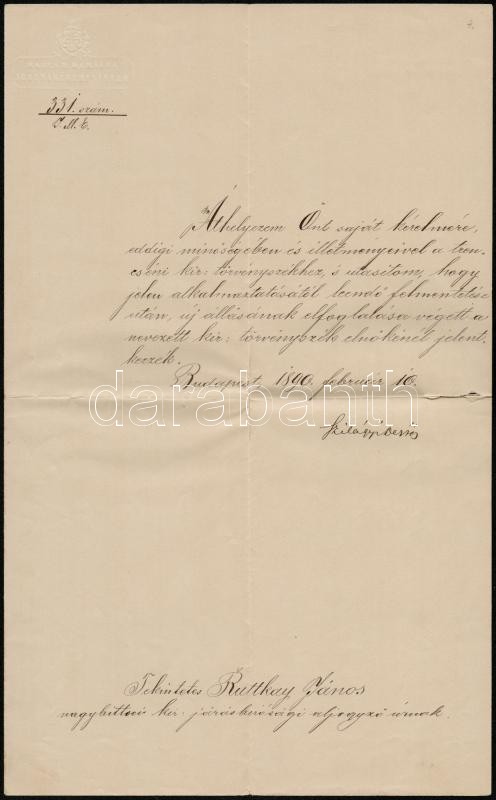 MAGYAR KIRÁLYI
331. szám.
I. M. E.
Áthelyezem Önt saját kérelmére,
eddigi minőségében és illetményeivel a tren-
cséni kir: törvényszékhez, s utasítom, hogy
jelen alkalmaztatásától leendő felmentetése
után, uj állásának elfoglalása végett a
nevezett kir: törvényszék elnökénél jelent-
kezzék.
Budapest, 1890. február 16.
darabanth
Szilágyi Dezső
Tekintetes Ruttkay János
nagybittsei kir: járásbirósági aljegyző úrnak.